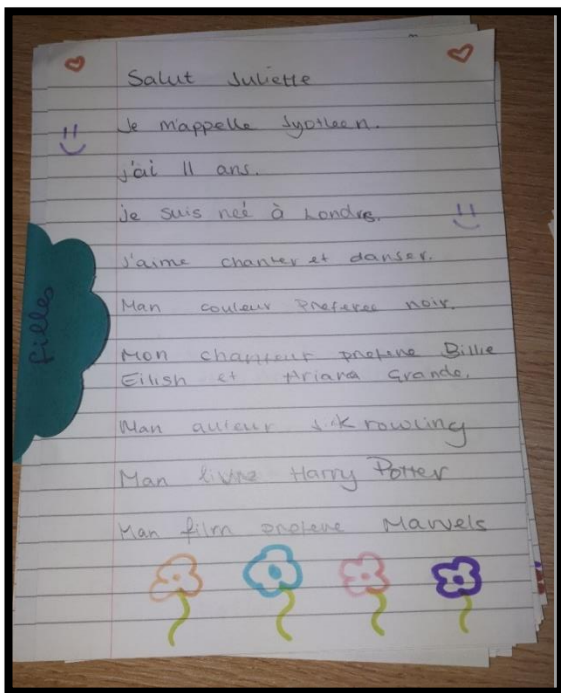 Salut Juliette
Je m'appelle Jyotleen.
j'ai 11 ans.
je suis neé à Londre.
J'aime chanter et danser.
Man couleur preferee noir.
Mon chanteur prefere Billie
Eilish et Ariana Grande.
Man auteur J.K rowling
Man livre Harry Potter
Man film prefere Marvels
filles